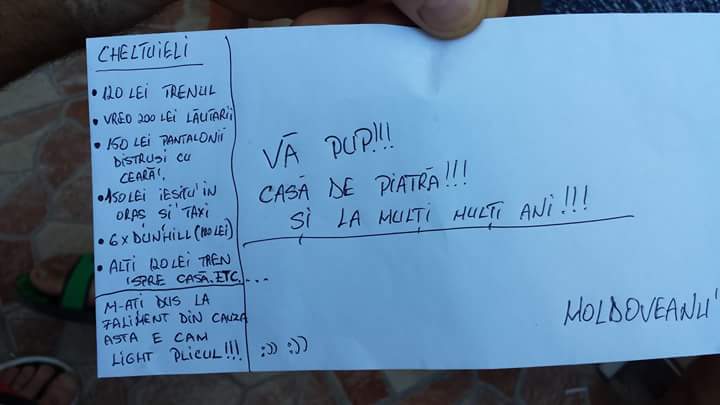 CHELTUIELI
• 120 LEI TRENUL
• VREO 200 LEI LĂUTARII
• 150 LEI PANTALONII
DISTRUȘI CU
CEARĂ.
• 150 LEI IEȘITU' ÎN
ORAȘ ȘI TAXI
• 6 x DUNHILL (110 LEI)
• ALȚI 120 LEI TREN
SPRE CASĂ. ETC....
M-AȚI DUS LA
FALIMENT DIN CAUZA
ASTA E CAM
LIGHT PLICUL!!!
VĂ PUP!!!
CASĂ DE PIATRĂ!!!
ȘI LA MULȚI MULȚI ANI!!!
:)) :))
MOLDOVEANU'